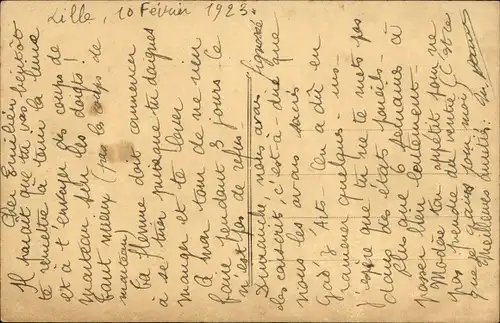 Lille, 10 Février 1925.
Cher Emilien
Il parait que tu vas bientôt
te remettre à tenir la lime
et à t'envoyer des coups de
marteau sur les doigts!
Tant mieux (pas les coups de
marteau)
La flemme doit commencer
à se tair puisque tu daignes
manger et te lever
A mon tour de ne rien
faire pendant 3 jours (ce
n'est pas de refus
Dimanche, nous avons
des camions, c'est-à-dire que
nous les avons sanés en
Gad'z'Arts. On a dû en
ramener quelques-uns
j'espère que tu te mets pas
dans des états pareils à
Plus que 6 semaines à
passer seulement.
Modère ton appétit pour ne
pas prendre du ventre (Est ce
que je gaffe, moi?)
Meilleures amitiés.